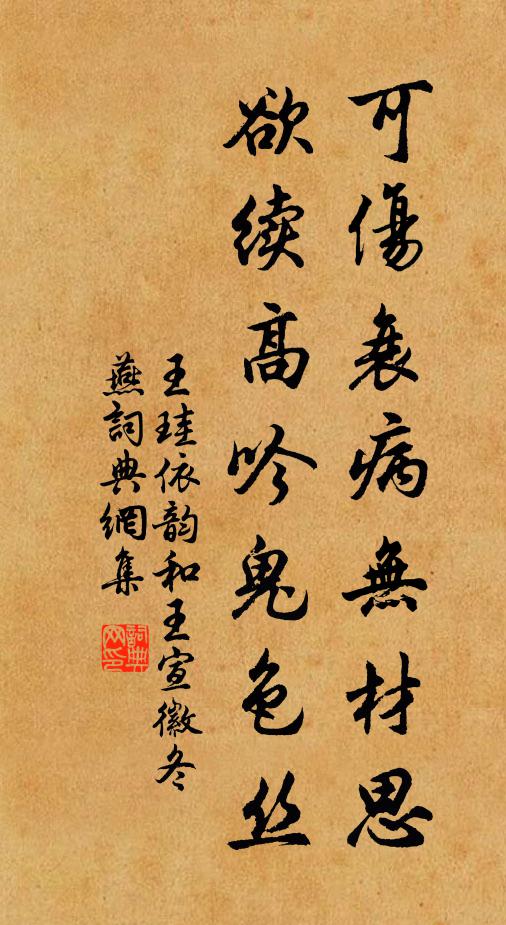 可傷衰病無材思
欲续高吟鬼色丝
王珪依韵和王宣徽冬
燕詞典網集
詞典
网印